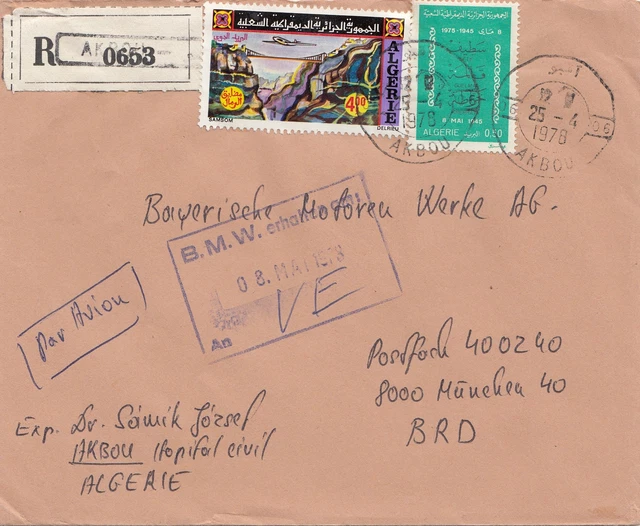 R AKBOU
0653
الجمهورية الجزائرية الديمقراطية الشعبية
البريد الجوي
ALGERIE
4,00
SAMSOM
DELRIEU
الجمهورية الجزائرية الديمقراطية الشعبية
1975-1945
8 ماي
8 MAI 1945
ALGERIE
0,50
25-4
1978
AKBOU
25-4
1978
AKBOU
06
Bayerische Motoren Werke AG.
B.M.W. erhalten am:
08. MAI 1978
VE
An
Par Avion
Postfach 400240
8000 München 40
BRD
Exp. Dr. Sámik József
AKBOU Hopital civil
ALGERIE